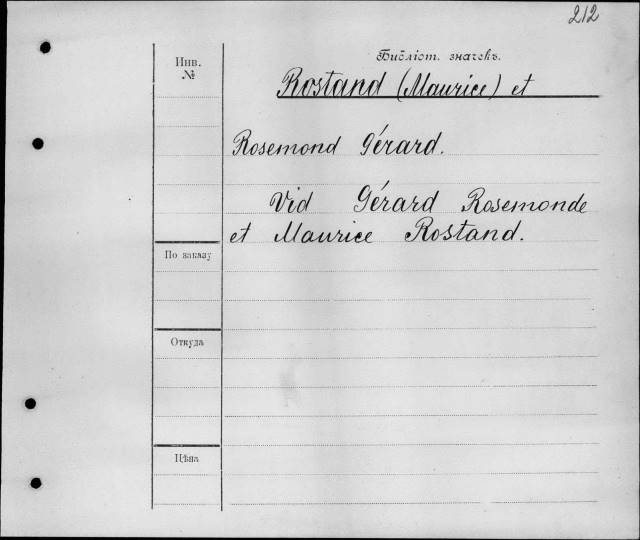 212
Инв.
№
Библіот. значекъ.
Rostand (Maurice) et
Rosemond Gérard.
Vid Gérard Rosemonde
et Maurice Rostand.
По заказу
Откуда
Цѣна